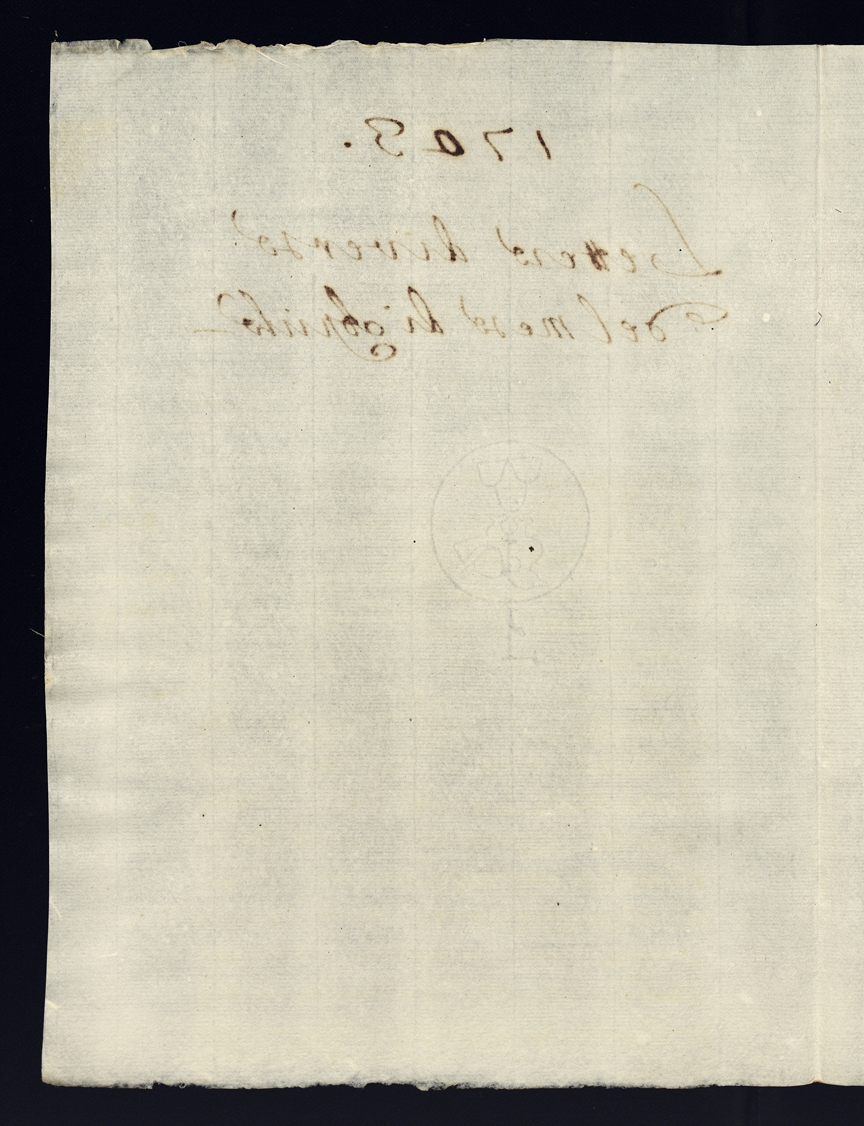 1703.
Lettere diverse
del mese di